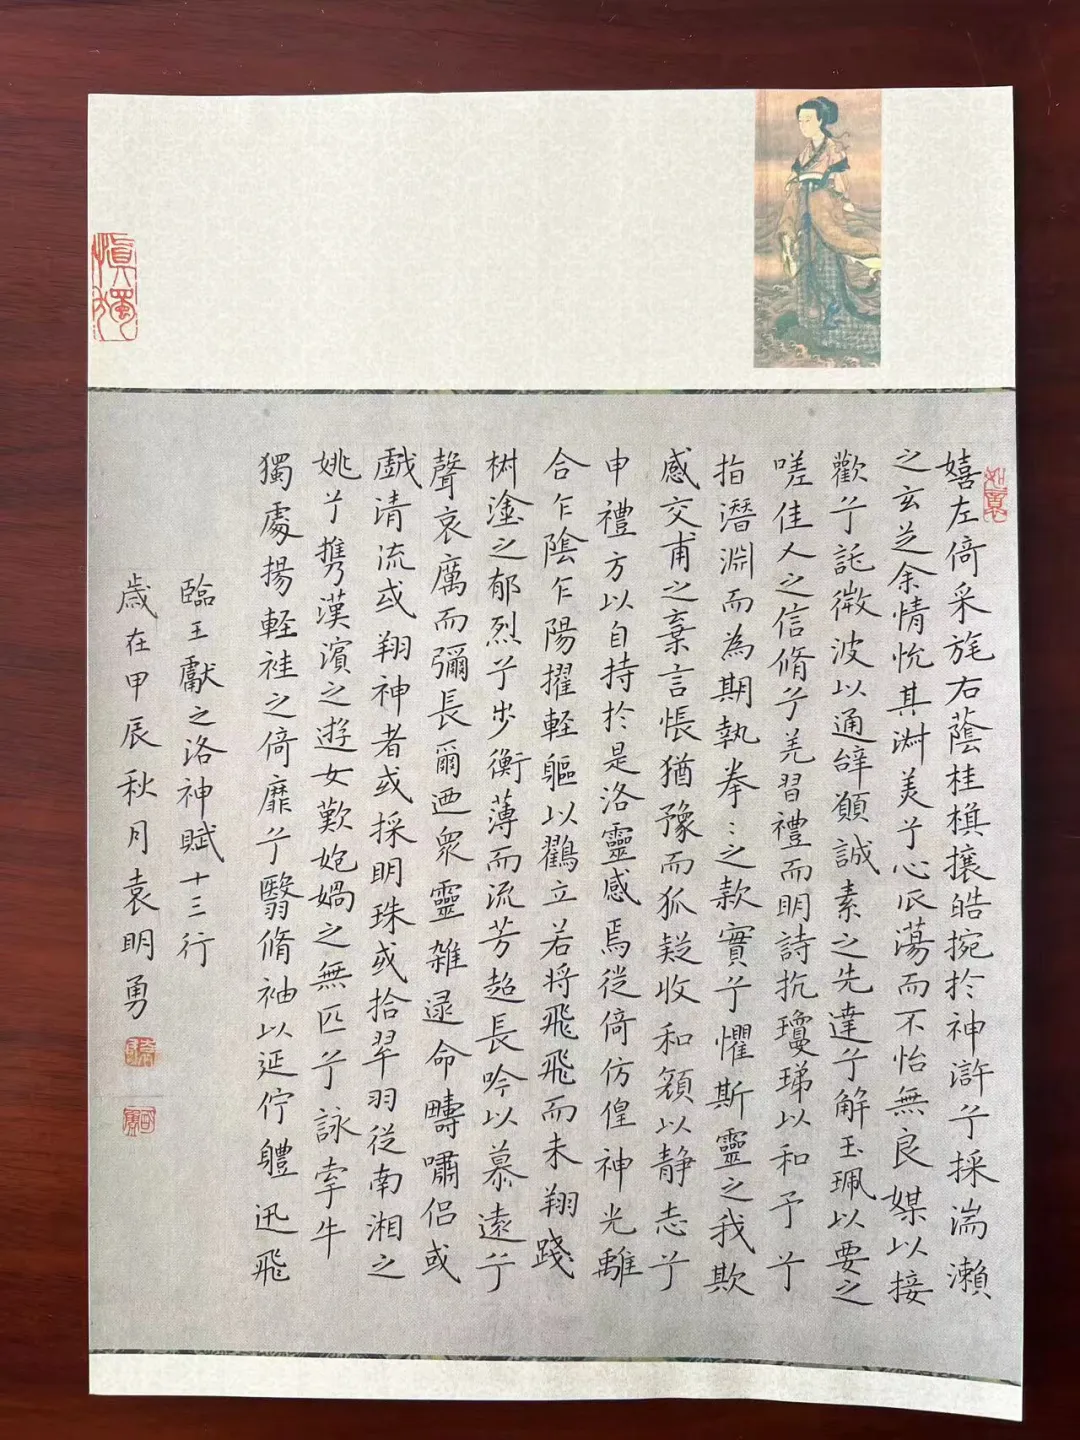 嬉左倚采旄右蔭桂樔攘皓捥於神滸兮採湍瀨
之玄芝余情悅其淑美兮心辰蕩而不怡無良媒以接
歡兮託微波以通辝願誠素之先達兮解玉珮以要之
嗟佳人之信脩兮羌習禮而明詩抗瓊珶以和予兮
指潛淵而為期執拳〻之款實兮懼斯靈之我欺
感交甫之棄言悵猶豫而狐疑收和顏以静志兮
申禮方以自持於是洛靈感焉從倚仿偟神光離
合乍陰乍陽擢輕軀以鸖立若將飛飛而未翔踐
樹塗之郁烈兮步衡薄而流芳超長吟以慕遠兮
聲哀厲而彌長爾迺眾靈雜遝命疇嘯侶或
戲清流或翔神者或採明珠或拾翠羽從南湘之
姚兮携漢濱之遊女歎匏媧之無匹兮詠牽牛
獨處揚輕袿之倚靡兮翳脩袖以延佇體迅飛
臨王獻之洛神賦十三行
歲在甲辰秋月袁明勇
慎獨
如意